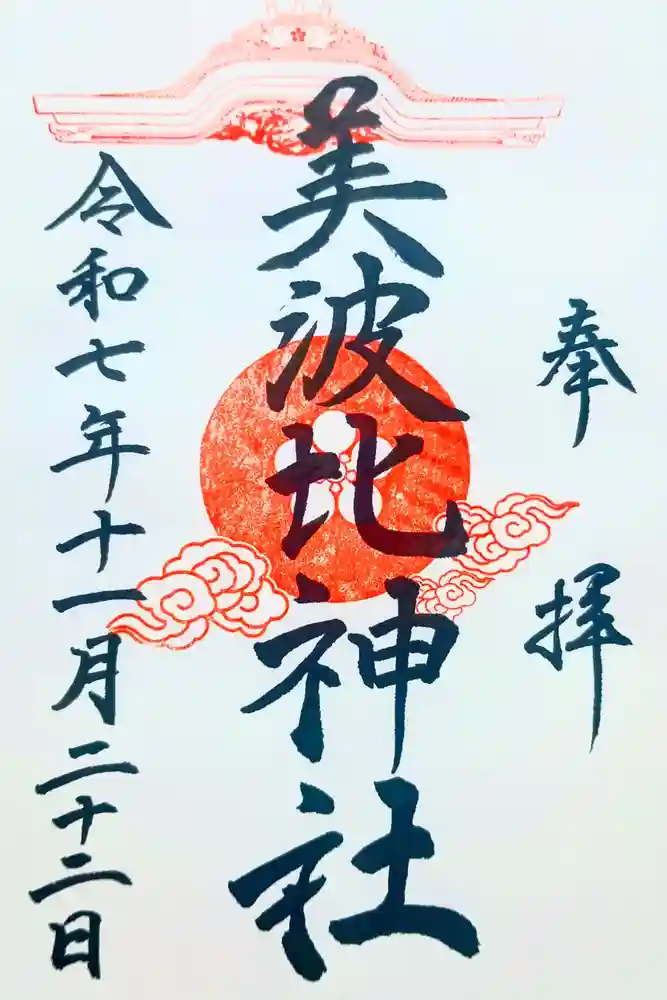 奉拝
美波比神社
令和七年十一月二十二日